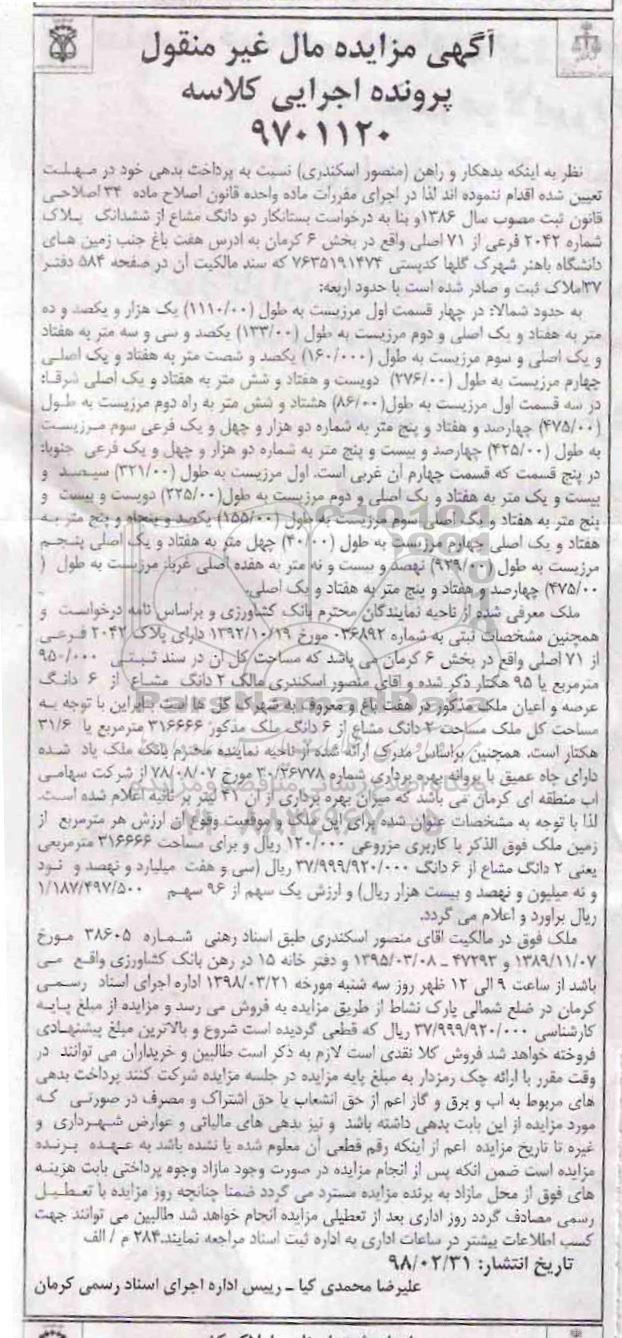 آگهی مزایده مال غیر منقول
پرونده اجرایی کلاسه
۹۷۰۱۱۲۰
نظر به اینکه بدهکار و راهن (منصور اسکندری) نسبت به پرداخت بدهی خود در مهلت
تعیین شده اقدام ننموده اند لذا در اجرای مقررات ماده واحده قانون اصلاح ماده ۳۴ اصلاحی
قانون ثبت مصوب سال ۱۳۸۶و بنا به درخواست بستانکار دو دانگ مشاع از ششدانگ پلاک
شماره ۲۰۴۲ فرعی از ۷۱ اصلی واقع در بخش ۶ کرمان به ادرس هفت باغ جنب زمین های
دانشگاه باهنر شهرک گلها کدپستی ۷۶۳۵۱۹۱۴۷۴ که سند مالکیت آن در صفحه ۵۸۴ دفتر
۳۷املاک ثبت و صادر شده است با حدود اربعه:
به حدود شمالا: در چهار قسمت اول مرزیست به طول (۱۱۱۰/۰۰) یک هزار و یکصد و ده
متر به هفتاد و یک اصلی و دوم مرزیست به طول (۱۳۳/۰۰) یکصد و سی و سه متر به هفتاد
و یک اصلی و سوم مرزیست به طول (۱۶۰/۰۰۰) یکصد و شصت متر به هفتاد و یک اصلی
چهارم مرزیست به طول (۲۷۶/۰۰) دویست و هفتاد و شش متر به هفتاد و یک اصلی شرقا:
در سه قسمت اول مرزیست به طول(۸۶/۰۰) هشتاد و شش متر به راه دوم مرزیست به طول
(۴۷۵/۰۰) چهارصد و هفتاد و پنج متر به شماره دو هزار و چهل و یک فرعی سوم مرزیست
به طول (۴۲۵/۰۰) چهارصد و بیست و پنج متر به شماره دو هزار و چهل و یک فرعی جنوبا:
در پنج قسمت که قسمت چهارم آن غربی است. اول مرزیست به طول (۳۲۱/۰۰) سیصد و
بیست و یک متر به هفتاد و یک اصلی و دوم مرزیست به طول(۲۲۵/۰۰) دویست و بیست و
پنج متر به هفتاد و یک اصلی سوم مرزیست به طول (۱۵۵/۰۰) یکصد و پنجاه و پنج متر به
هفتاد و یک اصلی چهارم مرزیست به طول (۴۰/۰۰) چهل متر به هفتاد و یک اصلی پنجم
مرزیست به طول (۹۲۹/۰۰) نهصد و بیست و نه متر به هفده اصلی غربا: مرزیست به طول (
۴۷۵/۰۰) چهارصد و هفتاد و پنج متر به هفتاد و یک اصلی.
ملک معرفی شده از ناحیه نمایندگان محترم بانک کشاورزی و براساس نامه درخواست و
همچنین مشخصات ثبتی به شماره ۰۳۶۸۹۲ مورخ ۱۳۹۲/۱۰/۱۹ دارای پلاک ۲۰۴۲ فرعی
از ۷۱ اصلی واقع در بخش ۶ کرمان می باشد که مساحت کل آن در سند ثبتی ۹۵۰/۰۰۰
مترمربع یا ۹۵ هکتار ذکر شده و اقای منصور اسکندری مالک ۲ دانگ مشاع از ۶ دانگ
عرصه و اعیان ملک مذکور در هفت باغ و معروف به شهرک گل ها است بنابراین با توجه به
مساحت کل ملک مساحت ۲ دانگ مشاع از ۶ دانگ ملک مذکور ۳۱۶۶۶۶ مترمربع یا ۳۱/۶
هکتار است. همچنین براساس مدرک ارائه شده از ناحیه نماینده محترم بانک ملک یاد شده
دارای چاه عمیق با پروانه بهره برداری شماره ۳۰/۲۶۷۷۸ مورخ ۷۸/۰۸/۰۷ از شرکت سهامی
اب منطقه ای کرمان می باشد که میزان بهره برداری از ان ۴۱ لیتر بر ثانیه اعلام شده است.
لذا با توجه به مشخصات عنوان شده برای این ملک و موقعیت وقوع آن ارزش هر مترمربع از
زمین ملک فوق الذکر با کاربری مزروعی ۱۲۰/۰۰۰ ریال و برای مساحت ۳۱۶۶۶۶ مترمربعی
یعنی ۲ دانگ مشاع از ۶ دانگ ۳۷/۹۹۹/۹۲۰/۰۰۰ ریال (سی و هفت میلیارد و نهصد و نود
و نه میلیون و نهصد و بیست هزار ریال) و ارزش یک سهم از ۹۶ سهم ۱/۱۸۷/۴۹۷/۵۰۰
ریال براورد و اعلام می گردد.
ملک فوق در مالکیت اقای منصور اسکندری طبق اسناد رهنی شماره ۳۸۶۰۵ مورخ
۱۳۸۹/۱۱/۰۷ و ۴۷۲۹۳ ـ ۱۳۹۵/۰۳/۰۸ و دفتر خانه ۱۵ در رهن بانک کشاورزی واقع می
باشد از ساعت ۹ الی ۱۲ ظهر روز سه شنبه مورخه ۱۳۹۸/۰۳/۲۱ اداره اجرای اسناد رسمی
کرمان در ضلع شمالی پارک نشاط از طریق مزایده به فروش می رسد و مزایده از مبلغ پایه
کارشناسی ۳۷/۹۹۹/۹۲۰/۰۰۰ ریال که قطعی گردیده است شروع و بالاترین مبلغ پیشنهادی
فروخته خواهد شد فروش کلا نقدی است لازم به ذکر است طالبین و خریداران می توانند در
وقت مقرر با ارائه چک رمزدار به مبلغ پایه مزایده در جلسه مزایده شرکت کنند پرداخت بدهی
های مربوط به اب و برق و گاز اعم از حق انشعاب یا حق اشتراک و مصرف در صورتی که
مورد مزایده از این بابت بدهی داشته باشد و نیز بدهی های مالیاتی و عوارض شهرداری و
غیره تا تاریخ مزایده اعم از اینکه رقم قطعی آن معلوم شده یا نشده باشد به عهده برنده
مزایده است ضمن آنکه پس از انجام مزایده در صورت وجود مازاد وجوه پرداختی بابت هزینه
های فوق از محل مازاد به برنده مزایده مسترد می گردد ضمنا چنانچه روز مزایده با تعطیل
رسمی مصادف گردد روز اداری بعد از تعطیلی مزایده انجام خواهد شد طالبین می توانند جهت
کسب اطلاعات بیشتر در ساعات اداری به اداره ثبت اسناد مراجعه نمایند.۲۸۴ م / الف
تاریخ انتشار: ۹۸/۰۲/۳۱
علیرضا محمدی کیا ـ رییس اداره اجرای اسناد رسمی کرمان